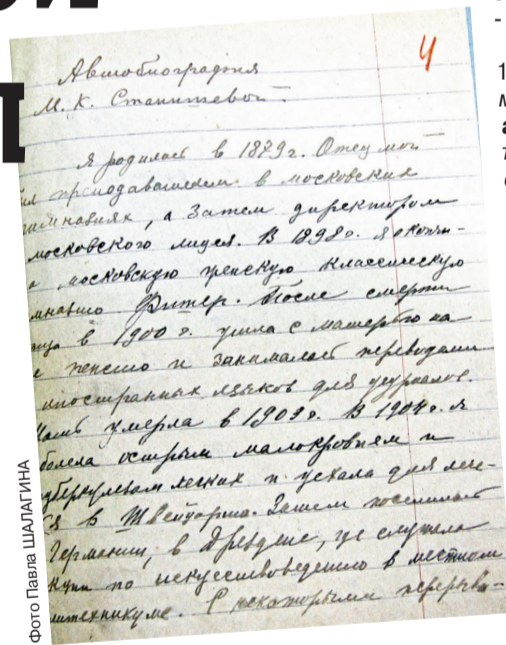 4
Автобиография
М. К. Станишевой.
Я родилась в 1879 г. Отец мой
преподавателем в московских
гимназиях, а затем директором
московского лицея. В 1898 г. я окончи-
московскую женскую классическую
Фишер. После смерти
в 1900 г. жила с матерью на
пенсию и занималась переводами
иностранных языков для журналов.
Мать умерла в 1909 г. В 1904 г. я
болела острым малокровием и
туберкулезом легких и уехала для лече-
в Швейцарию. Затем поселилась
Германии, в Дрездене, где слушала
по искусствоведению в местном
политехникуме. С некоторыми переры-
Фото Павла ШАЛАГИНА